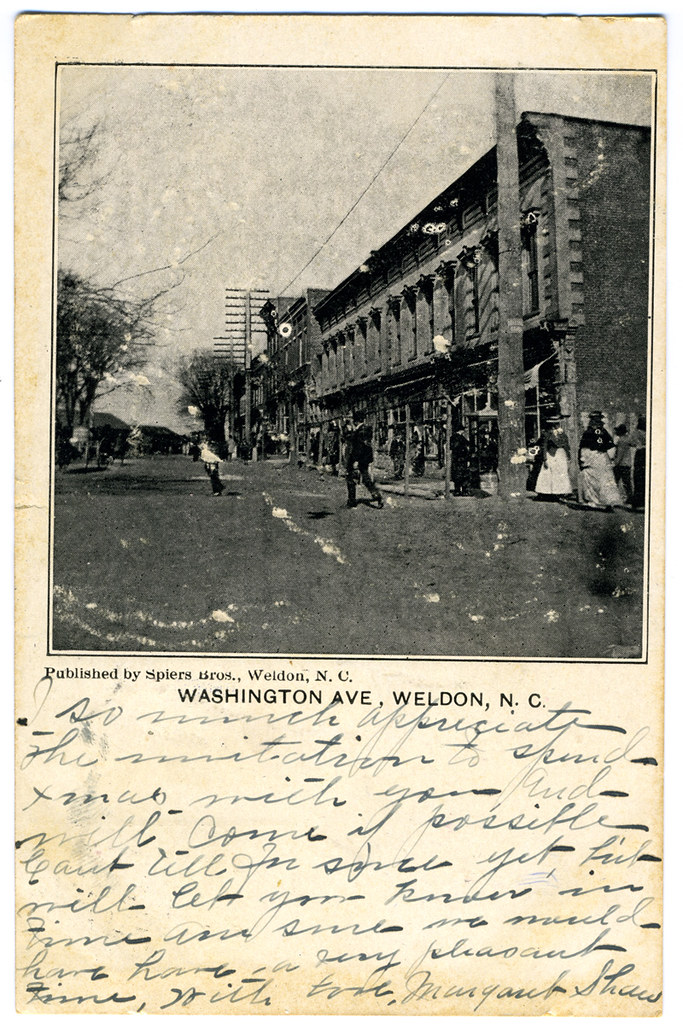 Published by Spiers Bros., Weldon, N. C.
WASHINGTON AVE, WELDON, N. C.
I so much appreciate
the invitation to spend
Xmas with you and
will come if possible
Cant tell for sure yet but
will let you know in
time am sure we would
have have a very pleasant
time, With love, Margaret Shaw